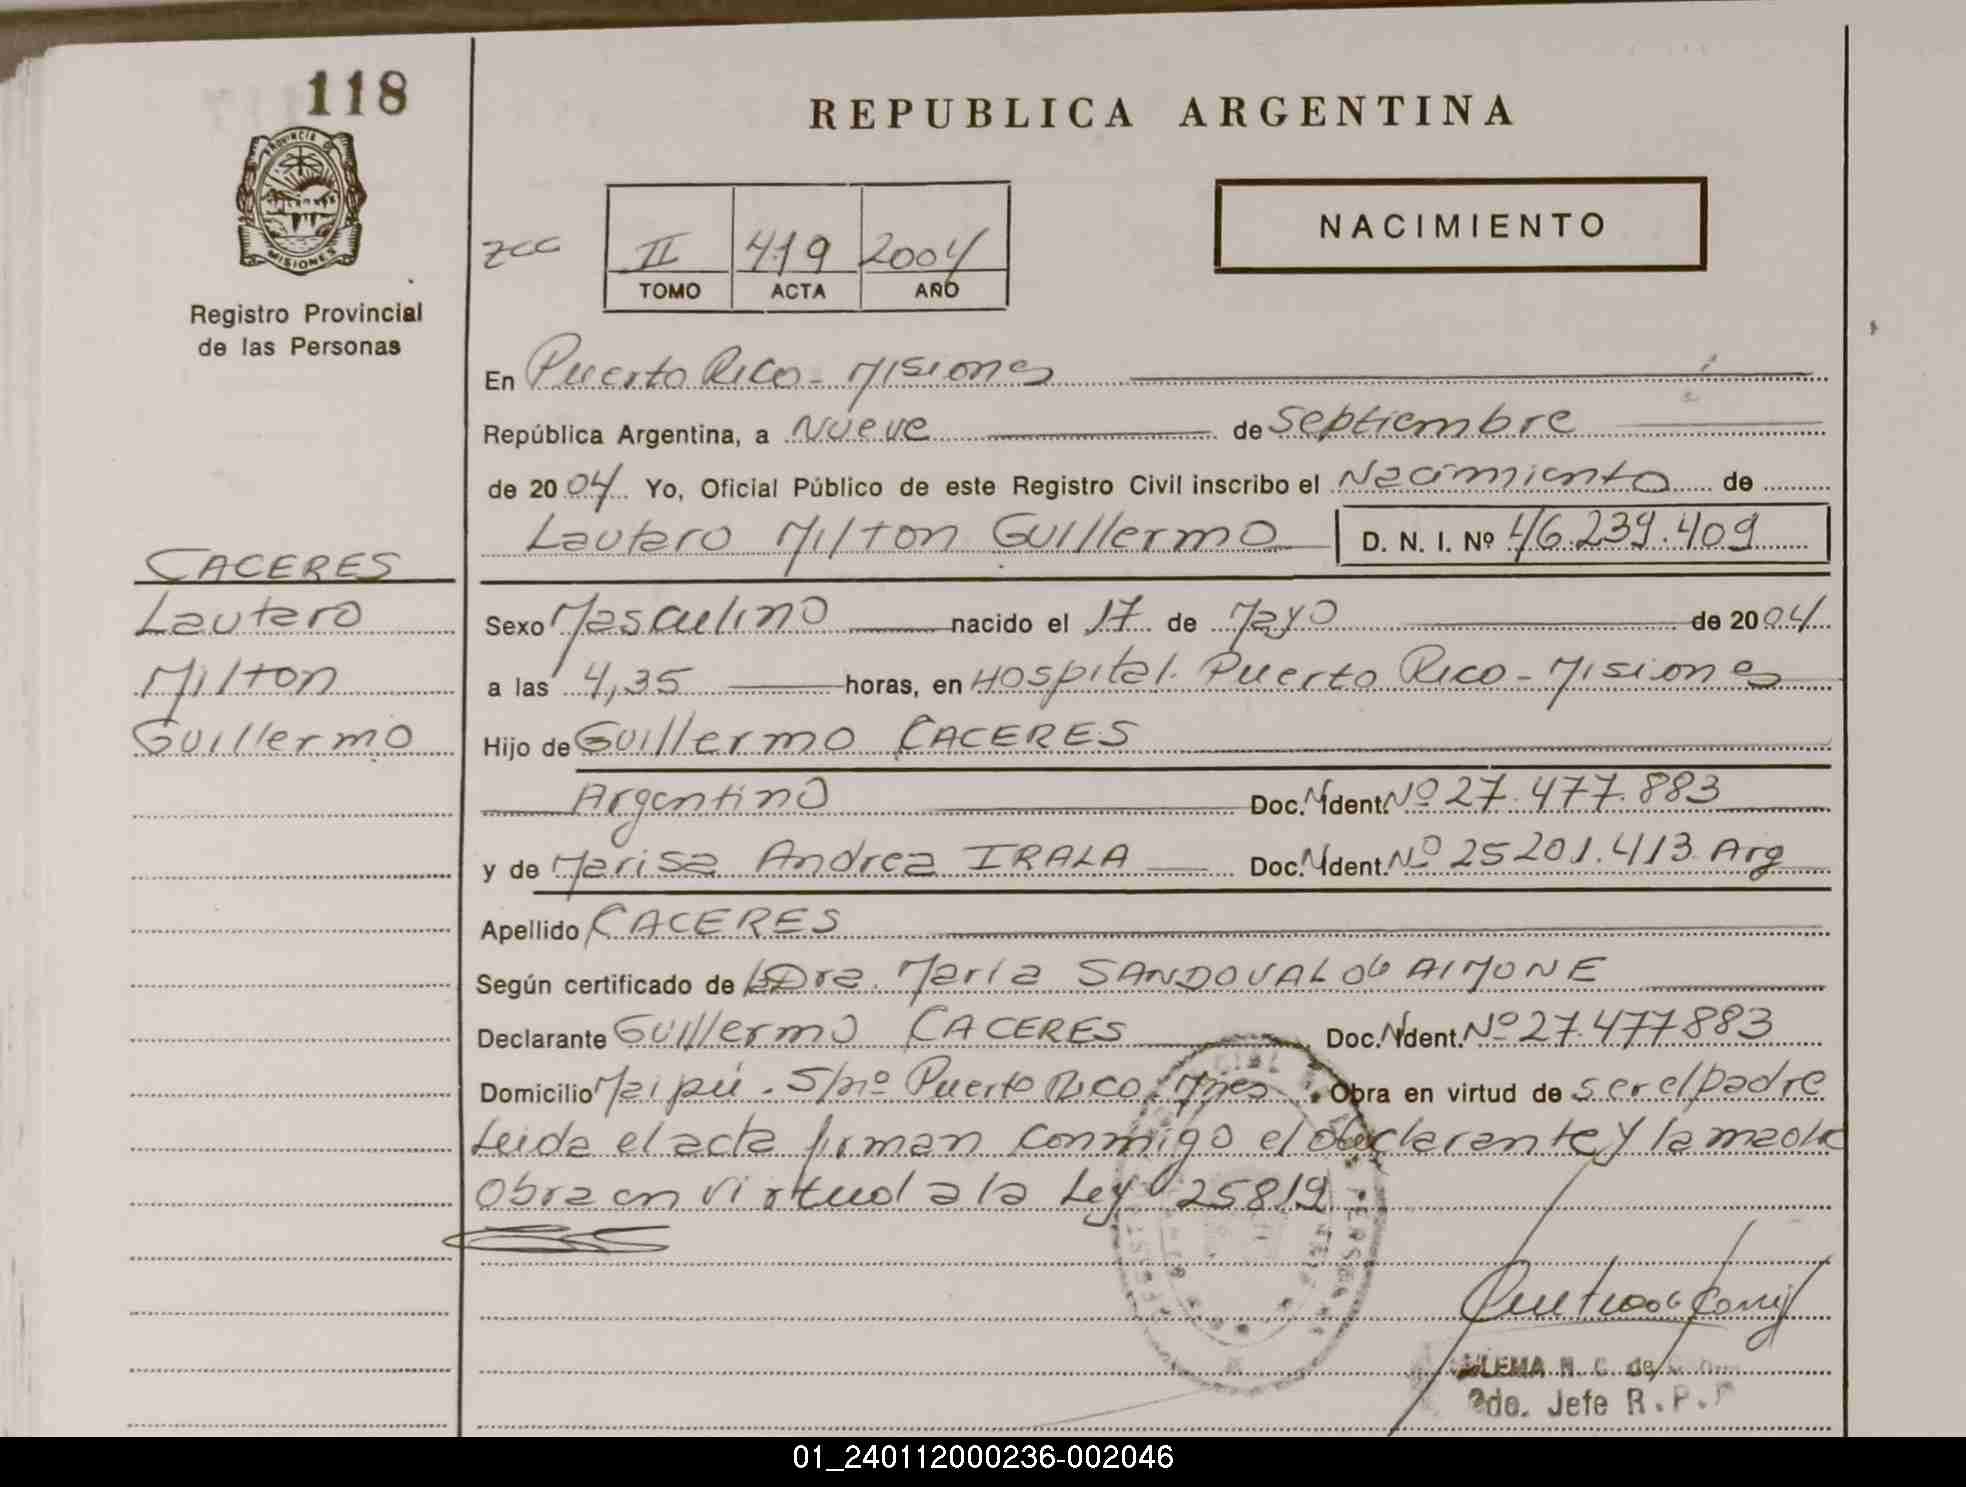 118
PROVINCIA DE
MISIONES
Registro Provincial
de las Personas
REPUBLICA ARGENTINA
NACIMIENTO
zcc
II 419 2004
TOMO ACTA AÑO
En Puerto Rico - Misiones
República Argentina, a Nueve de Septiembre
de 2004 Yo, Oficial Público de este Registro Civil inscribo el Nacimiento de
Lautaro Milton Guillermo D. N. I. Nº 46.239.409
CACERES
Lautaro
Milton
Guillermo
Sexo Masculino nacido el 17 de Mayo de 2004
a las 4,35 horas, en Hospital. Puerto Rico - Misiones
Hijo de Guillermo CACERES
Argentino Doc. Ident. Nº 27.477.883
y de Marisa Andrea IRALA Doc. Ident. Nº 25201.413 Arg
Apellido CACERES
Según certificado de Dra. María SANDOVAL de AIMONE
Declarante Guillermo CACERES Doc. Ident. Nº 27.477883
Domicilio Maipú - S/nº Puerto Rico Mnes Obra en virtud de ser el padre
Leida el acta firman conmigo el declarante y la madre
Obra en virtud a la Ley 25819
N. C. de
2do. Jefe R. P.
01_240112000236-002046